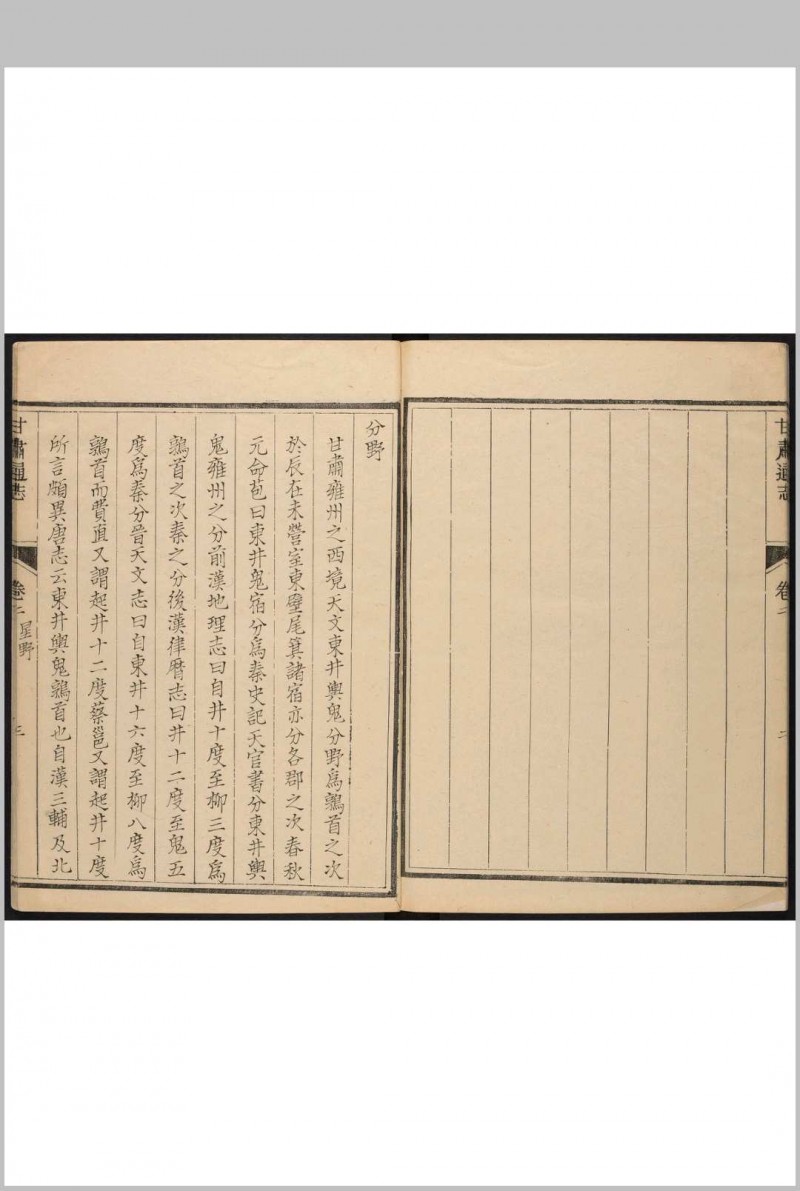 甘肅通志
卷二
二
分野
甘肅雍州之西境天文東井輿鬼分野為鶉首之次
於辰在未營室東壁尾箕諸宿亦分各郡之次春秋
元命苞曰東井鬼宿分為秦史記天官書分東井輿
鬼雍州之分前漢地理志曰自井十度至柳三度為
鶉首之次秦之分後漢律曆志曰井十二度至鬼五
度為秦分晉天文志曰自東井十六度至柳八度為
鶉首而費直又謂起井十二度蔡邕又謂起井十度
所言頗異唐志云東井輿鬼鶉首也自漢三輔及北
甘肅通志
卷二
星野
三